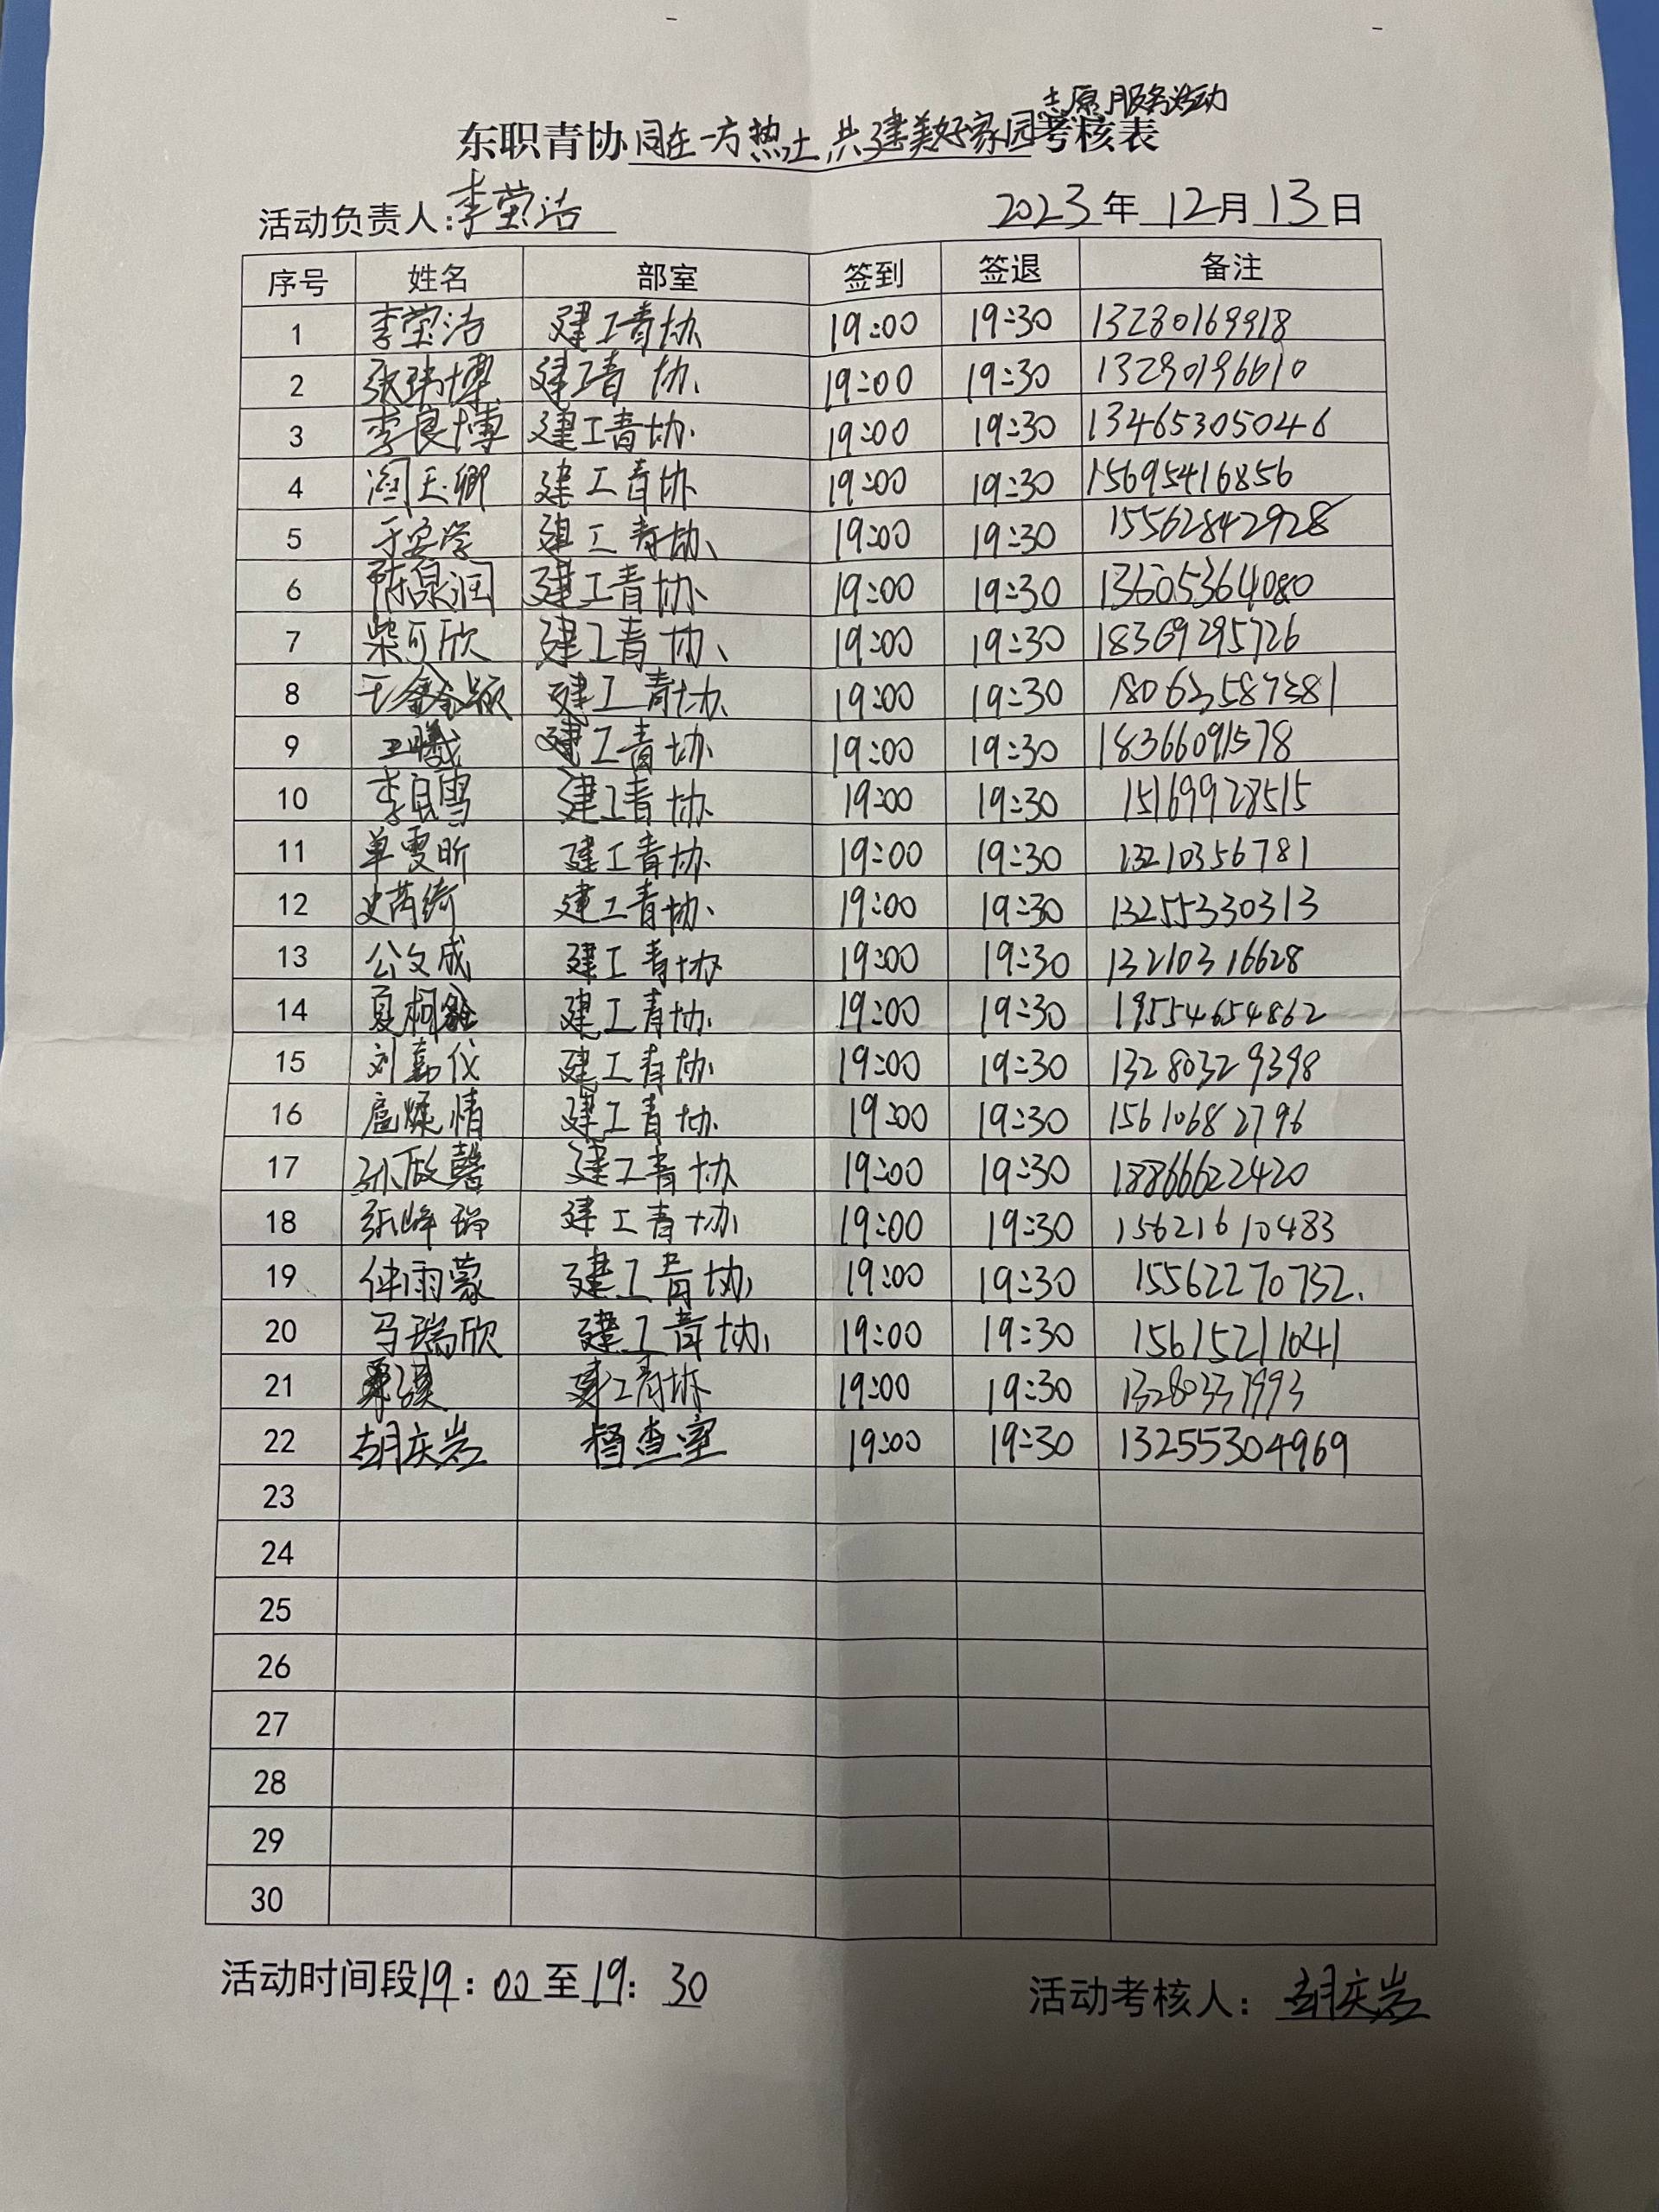 志愿服务活动
东职青协同在一方热土,共建美好家园考核表
活动负责人:李莹洁 2023年12月13日
序号 姓名 部室 签到 签退 备注
1 李莹洁 建工青协 19:00 19:30 13280169918
2 张瑞博 建工青协 19:00 19:30 13290196610
3 李良博 建工青协 19:00 19:30 13465305046
4 建工青协 19:00 19:30 15695416856
5 于安学 建工青协 19:00 19:30 15562842928
6 陈泉润 建工青协 19:00 19:30 13605364080
7 柴可欣 建工青协 19:00 19:30 18369295726
8 建工青协 19:00 19:30 18063587381
9 王曦 建工青协 19:00 19:30 18366091578
10 李自雪 建工青协 19:00 19:30 15169928515
11 单雯昕 建工青协 19:00 19:30 13210356781
12 史芮绮 建工青协 19:00 19:30 13255330313
13 公文成 建工青协 19:00 19:30 13210316628
14 建工青协 19:00 19:30 19554654862
15 刘嘉仪 建工青协 19:00 19:30 13280329398
16 建工青协 19:00 19:30 15610682796
17 建工青协 19:00 19:30 18866622420
18 张峰瑞 建工青协 19:00 19:30 15621610483
19 仲雨蒙 建工青协 19:00 19:30 15562270732.
20 马瑞欣 建工青协 19:00 19:30 15615211041
21 建工青协 19:00 19:30 13280337993
22 胡庆岩 督查室 19:00 19:30 13255304969
23
24
25
26
27
28
29
30
活动时间段19:00至19:30 活动考核人:胡庆岩